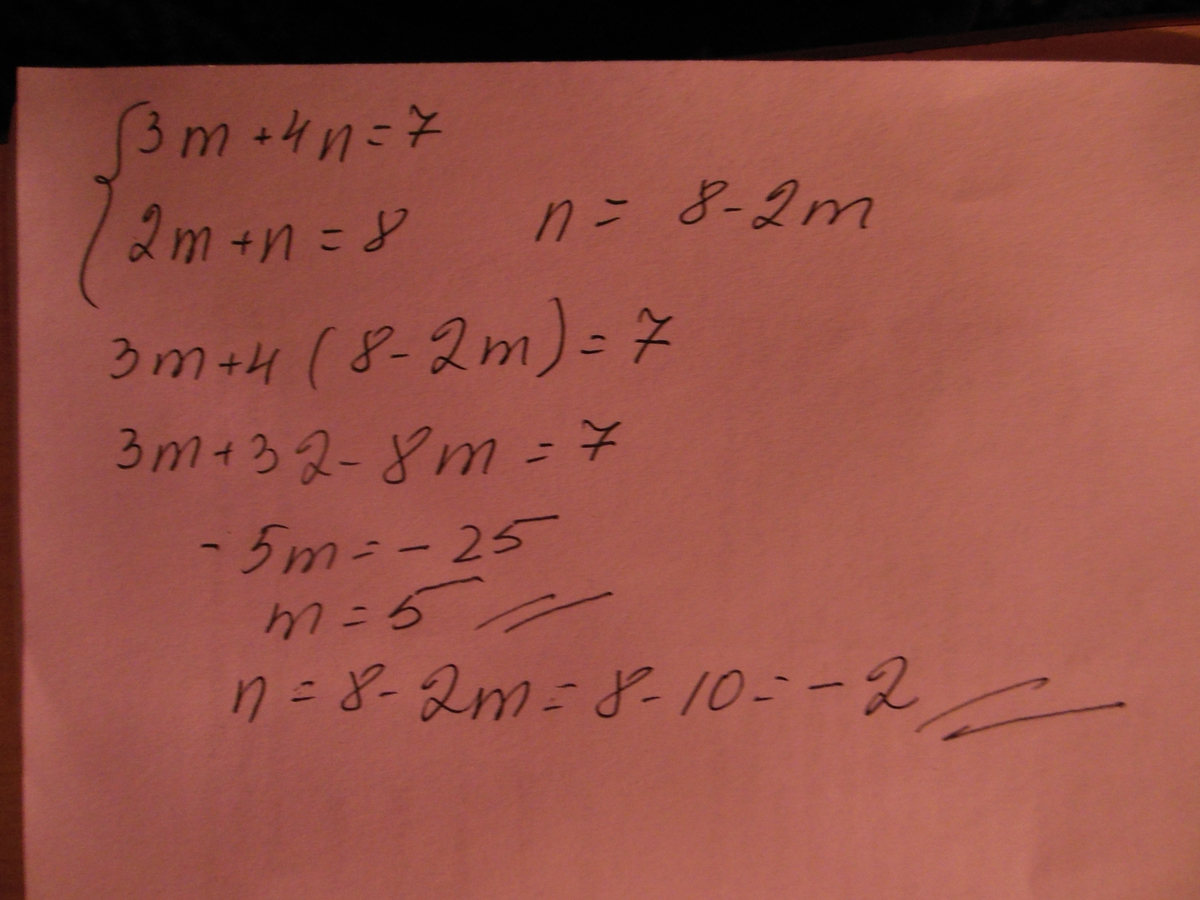 3m+4n=7
2m+n=8 n= 8-2m
3m+4(8-2m)=7
3m+32-8m=7
-5m=-25
m=5
n=8-2m=8-10=-2